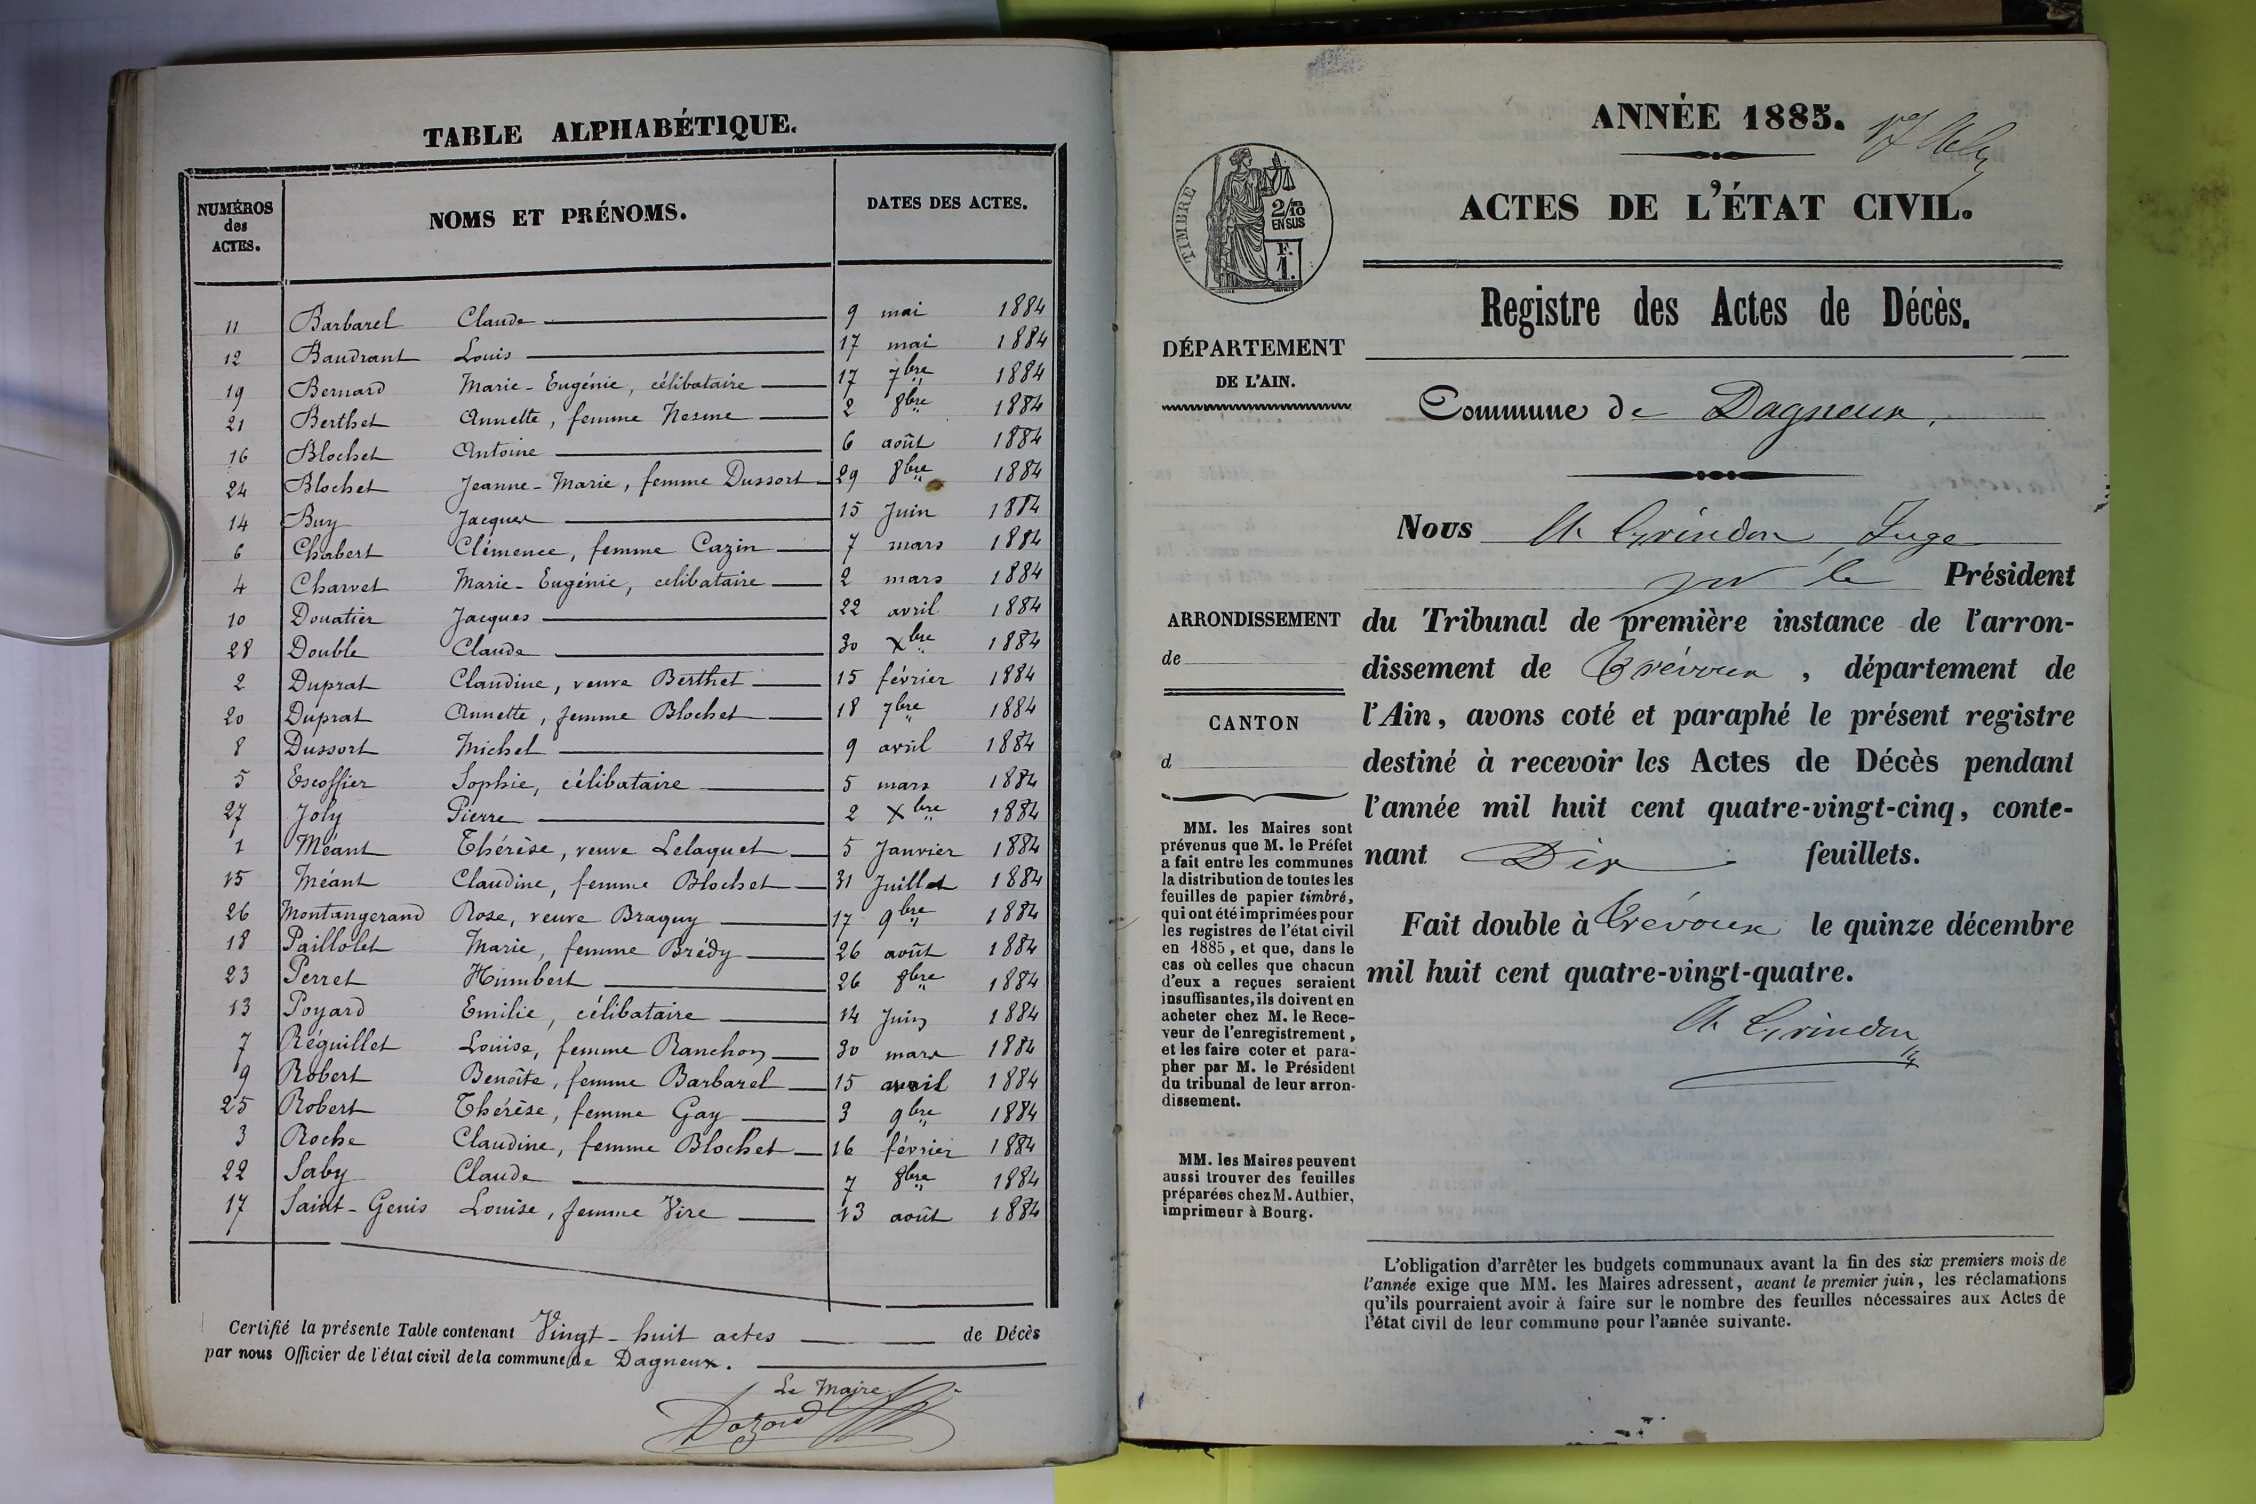 TABLE ALPHABÉTIQUE.
NUMÉROS des ACTES. NOMS ET PRÉNOMS. DATES DES ACTES.
11 Barbarel Claude 9 mai 1884
12 Baudrant Louis 17 mai 1884
19 Bernard Marie-Eugénie, célibataire 17 7bre 1884
21 Berthet Annette, femme Nesme 2 8bre 1884
16 Blochet Antoine 6 août 1884
24 Blochet Jeanne-Marie, femme Dussort 29 8bre 1884
14 Buy Jacques 15 Juin 1884
6 Chabert Clémence, femme Cazin 7 mars 1884
4 Charvet Marie-Eugénie, celibataire 2 mars 1884
10 Douatier Jacques 22 avril 1884
28 Double Claude 30 Xbre 1884
2 Duprat Claudine, veuve Berthet 15 février 1884
20 Duprat Annette, femme Blochet 18 7bre 1884
8 Dussort Michel 9 avril 1884
5 Escoffier Sophie, célibataire 5 mars 1884
27 Joly Pierre 2 Xbre 1884
1 Méant Thérèse, veuve Lelaquet 5 Janvier 1884
15 Méant Claudine, femme Blochet 31 Juillet 1884
26 Montangerand Rose, veuve Braquy 17 9bre 1884
18 Paillolet Marie, femme Brédy 26 août 1884
23 Perret Humbert 26 8bre 1884
13 Poyard Emilie, célibataire 14 Juin 1884
7 Réguillet Louise, femme Ranchon 30 mars 1884
9 Robert Benoîte, femme Barbarel 15 avril 1884
25 Robert Thérèse, femme Gay 3 9bre 1884
3 Roche Claudine, femme Blochet 16 février 1884
22 Saby Claude 7 8bre 1884
17 Saint-Genis Louise, femme Vire 13 août 1884
Certifié la présente Table contenant Vingt-huit actes de Décès
par nous Officier de l'état civil de la commune de Dagneux.
Le Maire
ANNÉE 1885.
ACTES DE L'ÉTAT CIVIL.
TIMBRE
2/10
EN SUS
F.
1.
Registre des Actes de Décès.
DÉPARTEMENT
DE L'AIN.
Commune de Dagneux,
Nous Ch. Grindon, Juge
pr le Président
ARRONDISSEMENT
de
CANTON
d
du Tribunal de première instance de l'arron-
dissement de Trévoux, département de
l'Ain, avons coté et paraphé le présent registre
destiné à recevoir les Actes de Décès pendant
l'année mil huit cent quatre-vingt-cinq, conte-
nant Dix feuillets.
Fait double à Trévoux le quinze décembre
mil huit cent quatre-vingt-quatre.
Ch. Grindon
MM. les Maires sont
prévenus que M. le Préfet
a fait entre les communes
la distribution de toutes les
feuilles de papier timbré,
qui ont été imprimées pour
les registres de l'état civil
en 1885, et que, dans le
cas où celles que chacun
d'eux a reçues seraient
insuffisantes, ils doivent en
acheter chez M. le Rece-
veur de l'enregistrement,
et les faire coter et para-
pher par M. le Président
du tribunal de leur arron-
dissement.
MM. les Maires peuvent
aussi trouver des feuilles
préparées chez M. Authier,
imprimeur à Bourg.
L'obligation d'arrêter les budgets communaux avant la fin des six premiers mois de
l'année exige que MM. les Maires adressent, avant le premier juin, les réclamations
qu'ils pourraient avoir à faire sur le nombre des feuilles nécessaires aux Actes de
l'état civil de leur commune pour l'année suivante.